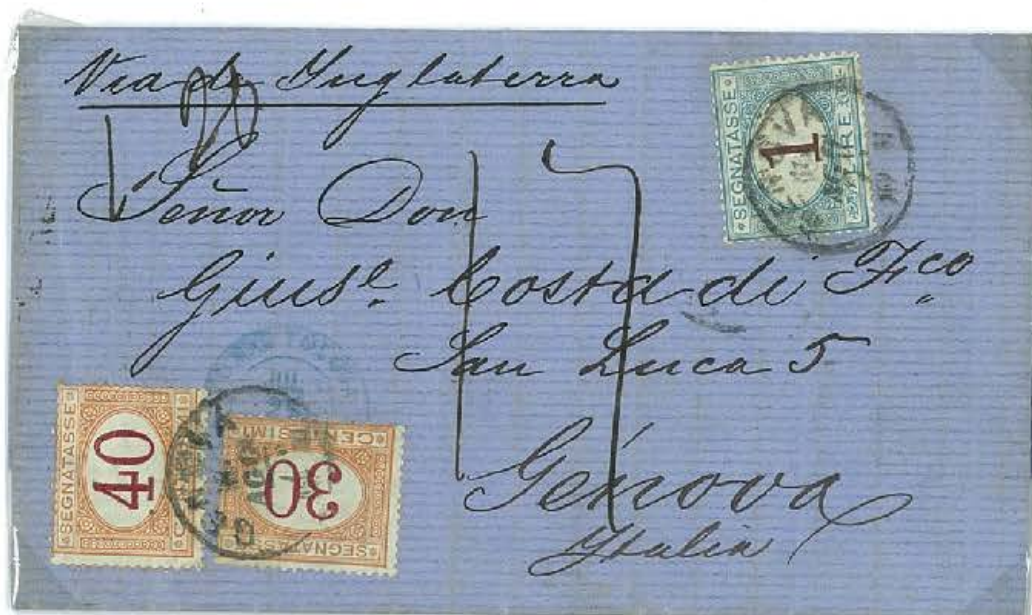 Via de Inglaterra
Señor Don
Giusᵉ. Costa di Fᶜᵒ
San Luca 5
Génova
Italia
17
SEGNATASSE 1 LIRE
SEGNATASSE 40
CENTESIMI 30 SEGNATASSE
GENOVA